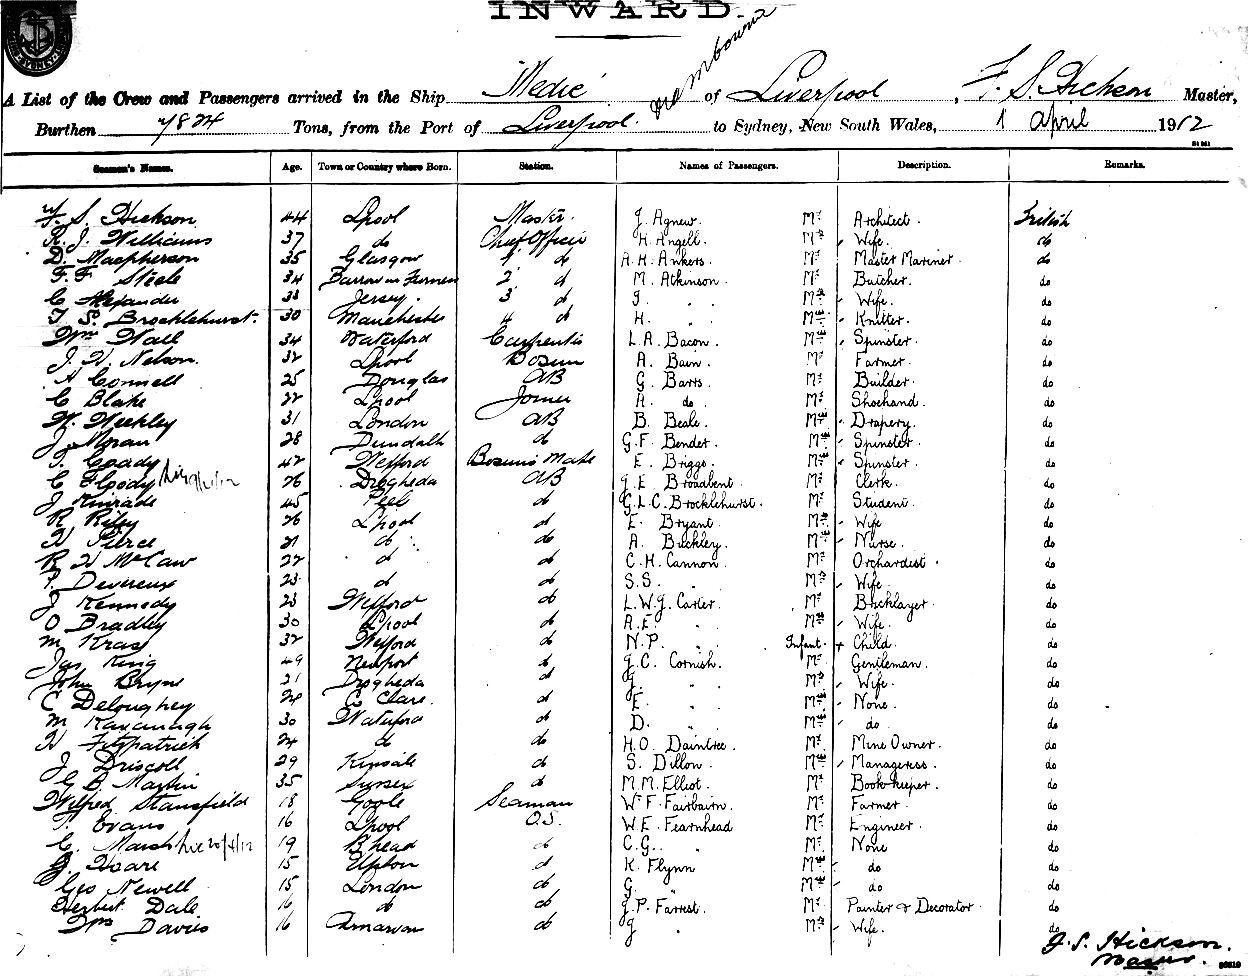 INWARD.
A List of the Crew and Passengers arrived in the Ship Medic of Liverpool, F. S. Hickson Master,
and Melbourne
Burthen 7824 Tons, from the Port of Liverpool. to Sydney, New South Wales, 1 April 1912
Seamen's Names. Age. Town or Country where Born. Station. Names of Passengers. Description. Remarks.
F. S. Hickson 44 Lpool Master J. Agnew. Mr Architect. British
R. J. Williams 37 do Chief Officer H. Angell. Mrs Wife. do
D. Macpherson 35 Glasgow 1 d A. H. Ankers. Mr Master Mariner. do
F. F. Steele 34 Barrow in Furness 2 d M. Atkinson. Mr Butcher. do
C Alexander 33 Jersey. 3 d J. " Mrs Wife. do
T S. Brocklehurst. 30 Manchester 4 d H. " Miss Knitter. do
Wm Wall 34 Waterford Carpenter L. A. Bacon. Miss Spinster. do
J. H. Nelson. 32 Lpool Bosun A. Bain. Mr Farmer. do
A Connell 25 Douglas AB G. Barrs. Mr Builder. do
C Blake 22 Lpool Joiner A. do. Mr Shophand. do
W. Weekley 31 London AB B. Beale. Miss Drapery. do
J. Moran 28 Dundalk do G. F. Bender. Miss Spinster. do
J. Coady 42 Wexford Bosuns Mate E. Briggs. Miss Spinster. do
C Floody 26 Drogheda AB J. E. Broadbent. Mr Clerk. do
J Kinrade 45 Peel d G. L. C. Brocklehurst. Mr Student. do
R Riley 26 Lpool d E. Bryant. Mrs Wife do
H Pierce 21 do do A. Buckley. Miss Nurse. do
R H McCaw 22 d d C. H. Cannon. Mr Orchardist. do
P. Devereux 23 d d S. S. " Mrs Wife. do
J Kennedy 23 Wexford do L. W. J. Carter. Mr Bricklayer. do
O Bradley 30 Lpool do A. E. " Mrs Wife. do
M Kras 32 Wexford do N. P. " Infant. Child. do
Jas King 49 Newport d J. C. Cornish. Mr Gentleman. do
John Bryne 21 Drogheda d J. " Mrs Wife. do
C Deloughey 24 Co Clare. d E. " Miss None. do
M Kavanagh 30 Waterford d D. " Miss do. do
H Fitzpatrick 24 d do H. O. Daintree. Mr Mine Owner. do
J Driscoll 29 Kinsale d S. Dillon. Miss Manageress. do
G B. Martin 35 Sussex d M. M. Elliot. Mr Book-keeper. do
Wilfred Stansfield 18 Goole Seaman W. F. Fairbairn. Mr Farmer. do
T. Evans 16 Lpool O.S. W. E. Fearnhead Mr Engineer. do
C. Marsh 19 B'head d C. G. " Mr None do
J. Hoare 15 Upton d K. Flynn Miss do. do
Geo Newell 15 London d G. " Miss do do
Herbert Dale 16 do d J. P. Farrest. Mr Painter & Decorator. do
Wm Davies 16 do J " Mrs Wife. do
F. S. Hickson.
Master.